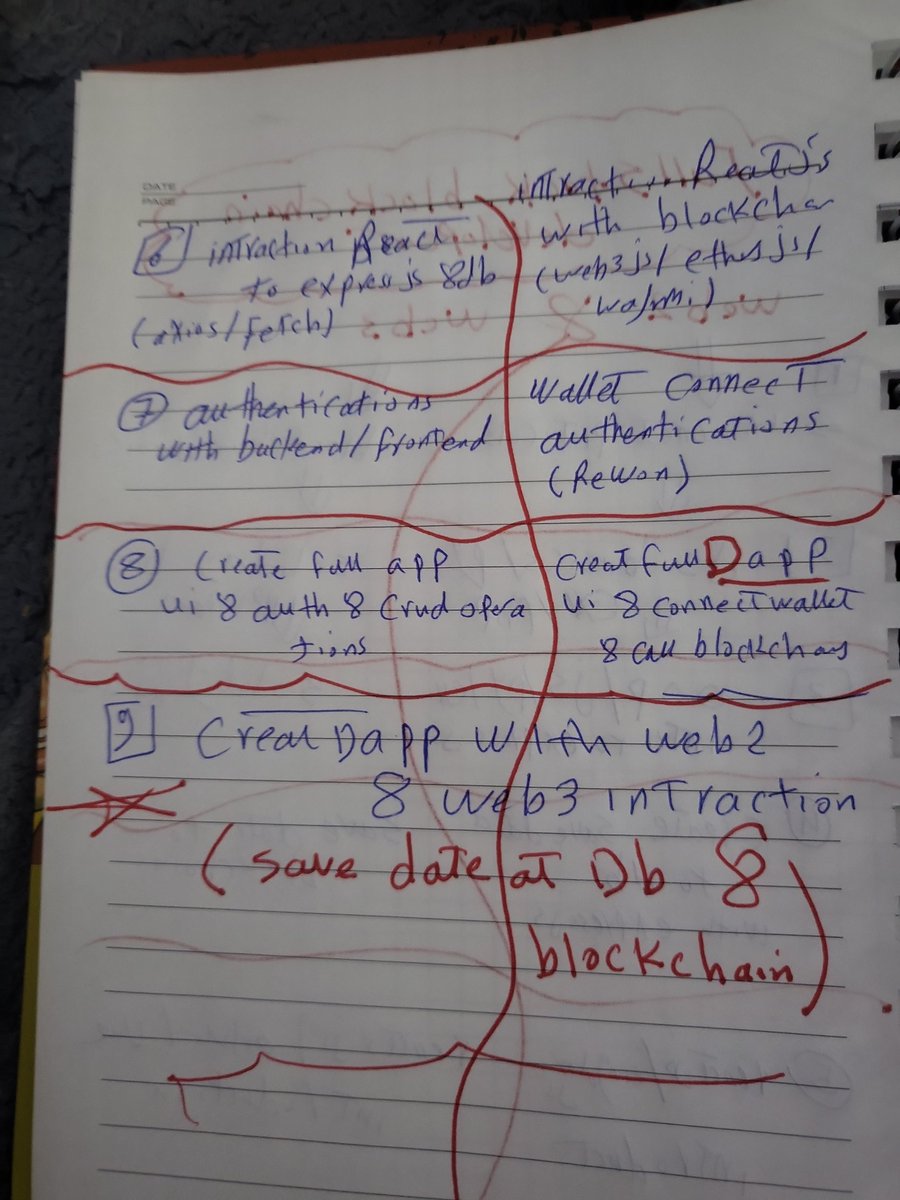 DATE
PAGE
6 intraction React
to express js 8 db
(axios/fetch)
intraction Reactjs
with blockchan
(web3js/ethesjs/
wagmi)
7 authentications
with backend/frontend
wallet connect
authentications
(Rewon)
8 Create full app
ui 8 auth 8 Crud opera
tions
Creat full Dapp
ui 8 connect wallet
8 call blockchan
9 Creat Dapp with web2
8 web3 intraction
(save date at Db 8
blockchain)